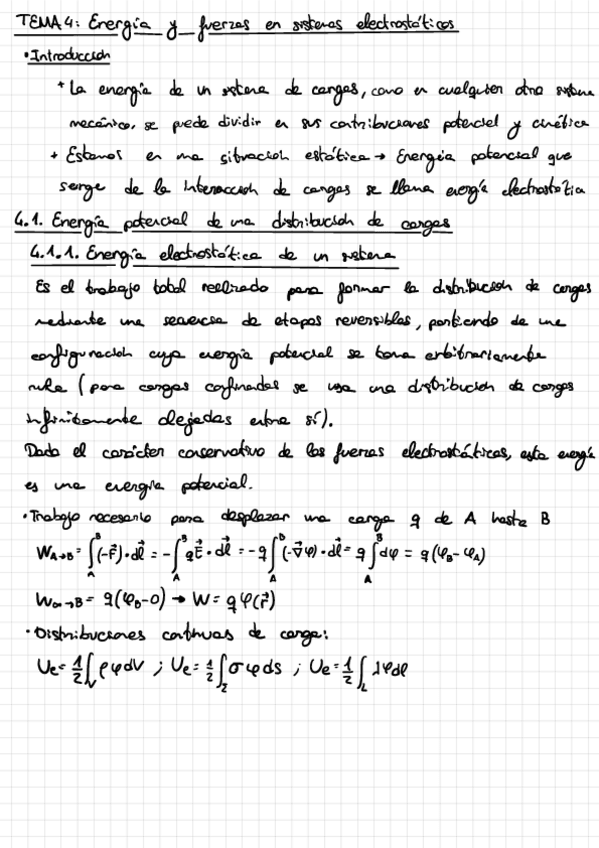 TEMA 4: Energía y fuerzas en sistemas electrostáticos
• Introducción
+ La energía de un sistema de cargas, como en cualquier otro sistema
mecánico, se puede dividir en sus contribuciones potencial y cinética
+ Estamos en una situación estática → Energía potencial que
surge de la interacción de cargas se llama energía electrostática
4.1. Energía potencial de una distribución de cargas
4.1.1. Energía electrostática de un sistema
Es el trabajo total realizado para formar la distribución de cargas
mediante una secuencia de etapas reversibles, partiendo de una
configuración cuya energía potencial se toma arbitrariamente
nula (para cargas confinadas se usa una distribución de cargas
infinitamente alejadas entre sí).
Dado el carácter conservativo de las fuerzas electrostáticas, esta energía
es una energía potencial.
• Trabajo necesario para desplazar una carga q de A hasta B
W_{A→B} = ∫_A^B (-F⃗)·dl⃗ = -∫_A^B qE⃗·dl⃗ = -q∫_A^B (-∇⃗φ)·dl⃗ = q∫_A^B dφ = q(φ_B-φ_A)
W_{∞→B} = q(φ_B-0) → W = qφ(r⃗)
• Distribuciones continuas de carga:
Ue = 1/2 ∫_V ρφdV ; Ue = 1/2 ∫_Σ σφds ; Ue = 1/2 ∫_L λφdl